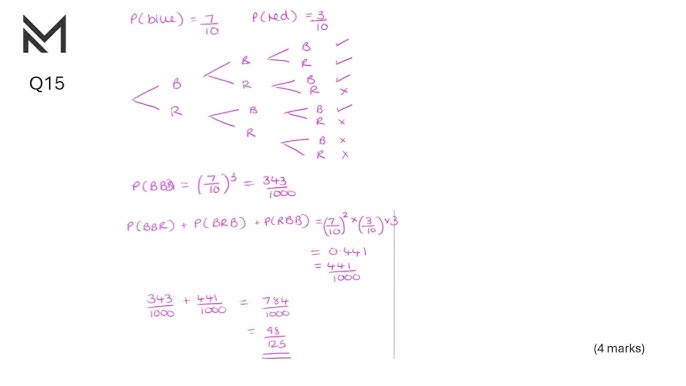 P(blue) = 7/10 P(red) = 3/10
Q15
B ✓
B
R ✓
B
B ✓
R
R ×
R
B ✓
B
R ×
R
B ×
R ×
P(BBB) = (7/10)^3 = 343/1000
P(BBR) + P(BRB) + P(RBB) = (7/10)^2 × (3/10) × 3
= 0.441
= 441/1000
343/1000 + 441/1000 = 784/1000
= 98/125
(4 marks)